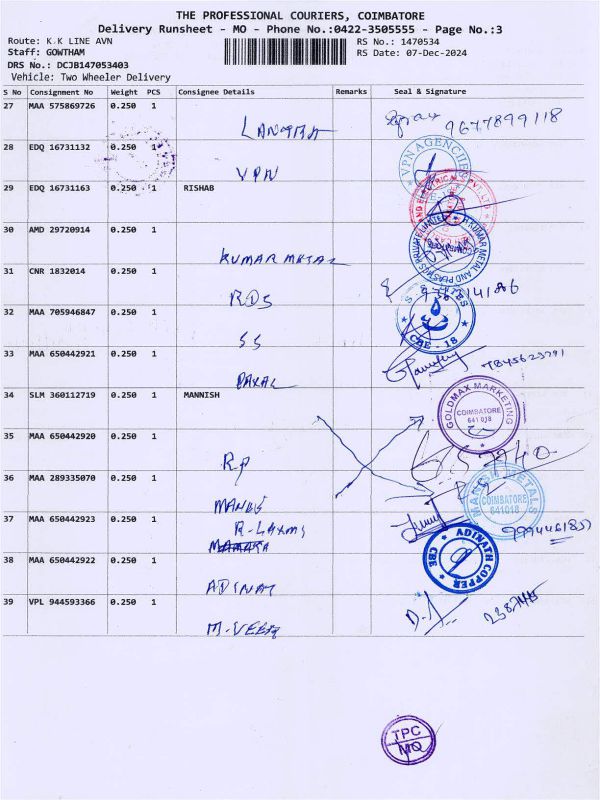 THE PROFESSIONAL COURIERS, COIMBATORE
Delivery Runsheet - MO - Phone No.:0422-3505555 - Page No.:3
Route: K.K LINE AVN RS No.: 1470534
Staff: GOWTHAM RS Date: 07-Dec-2024
DRS No.: DCJB147053403
Vehicle: Two Wheeler Delivery
S No Consignment No Weight PCS Consignee Details Remarks Seal & Signature
27 MAA 575869726 0.250 1
9677899118
28 EDQ 16731132 0.250 1
VPN AGENCIES
VPN
29 EDQ 16731163 0.250 1 RISHAB
30 AMD 29720914 0.250 1
KUMAR METAL
31 CNR 1832014 0.250 1
RDS
32 MAA 705946847 0.250 1
CBE - 18
SS
33 MAA 650442921 0.250 1
34 SLM 360112719 0.250 1 MANNISH
GOLDMAX MARKETING
COIMBATORE
641 018
35 MAA 650442920 0.250 1
RP
36 MAA 289335070 0.250 1
METALS
COIMBATORE
641018
37 MAA 650442923 0.250 1
R-LAXMI
38 MAA 650442922 0.250 1
ADINATH COPPER
CBE
ADINAT
39 VPL 944593366 0.250 1
TPC
MO